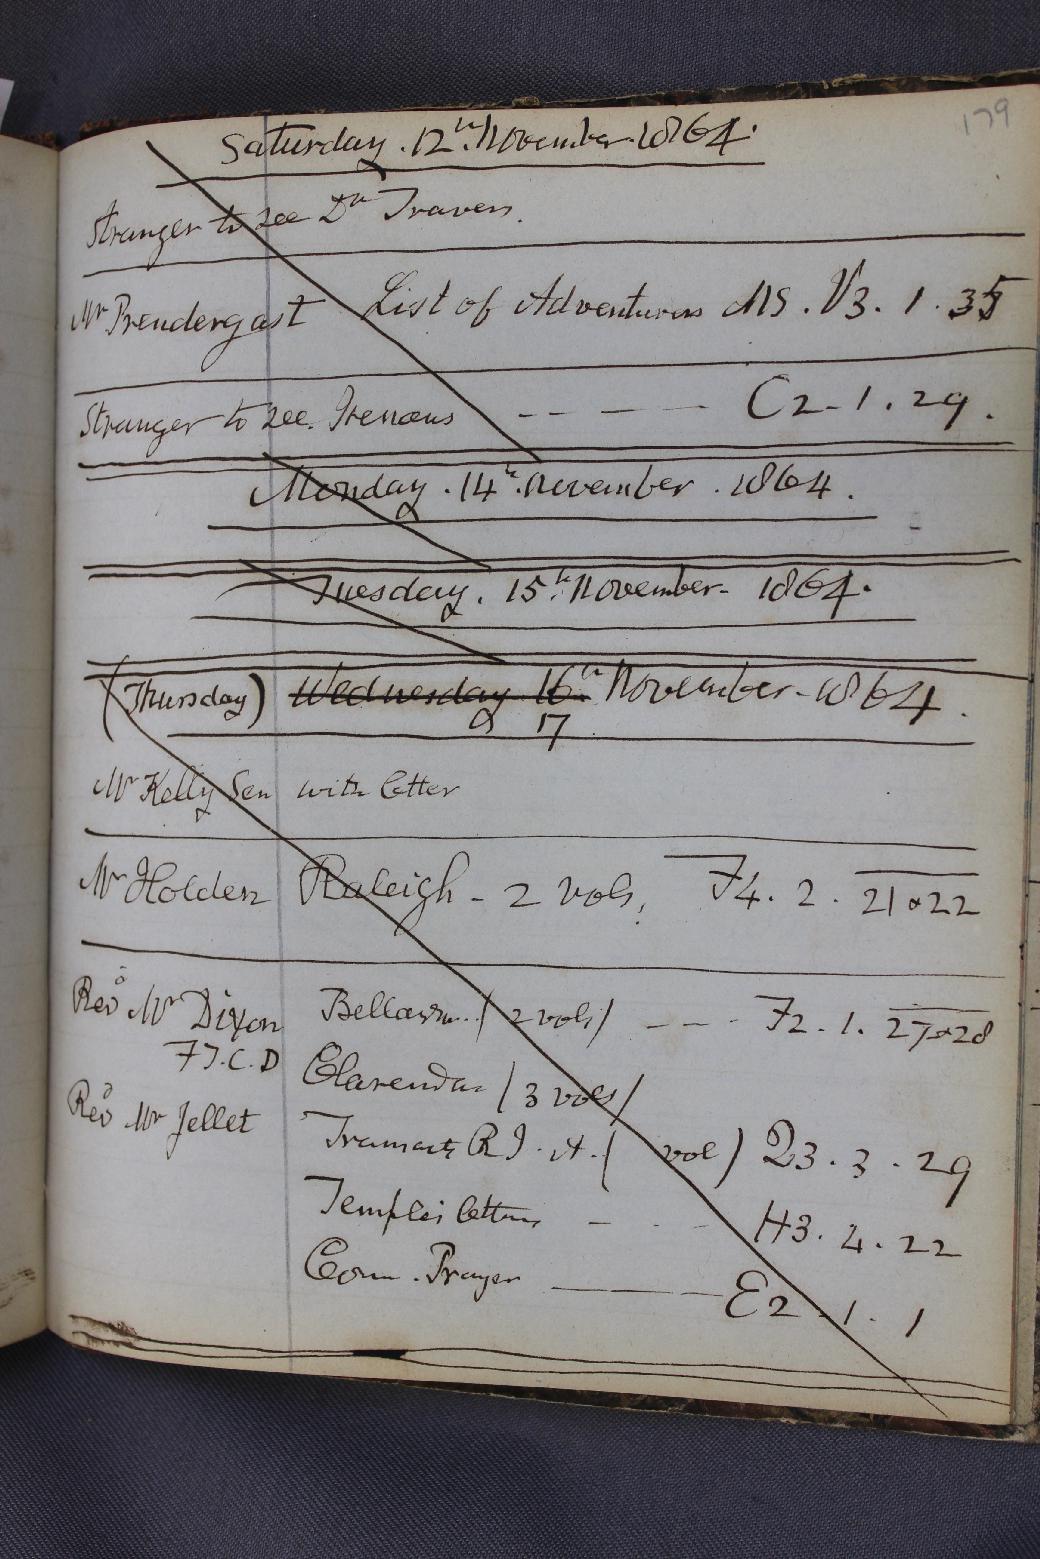 179
Saturday. 12th November. 1864.
Stranger to see Dr Travers.
Mr Prendergast List of Adventurers MS. V3. 1. 35
Stranger to see Irenæus - - - - C2-1. 29.
Monday. 14th November. 1864.
Tuesday. 15th November- 1864.
(Thursday) Wednesday 16th November- 1864.
17
Mr Kelly Sen with letter
Mr Holden Raleigh - 2 vols, F4. 2. 21 & 22
Revd Mr Dixon Bellarm. (2 vols) - - - F2. 1. 27 & 28
F.T.C.D
Clarendon (3 vols)
Revd Mr Jellet Transacts R I. A. ( vol) Q3. 3. 29
Temple's letters - - - H3. 4. 22
Com. Prayer - E2. 1. 1